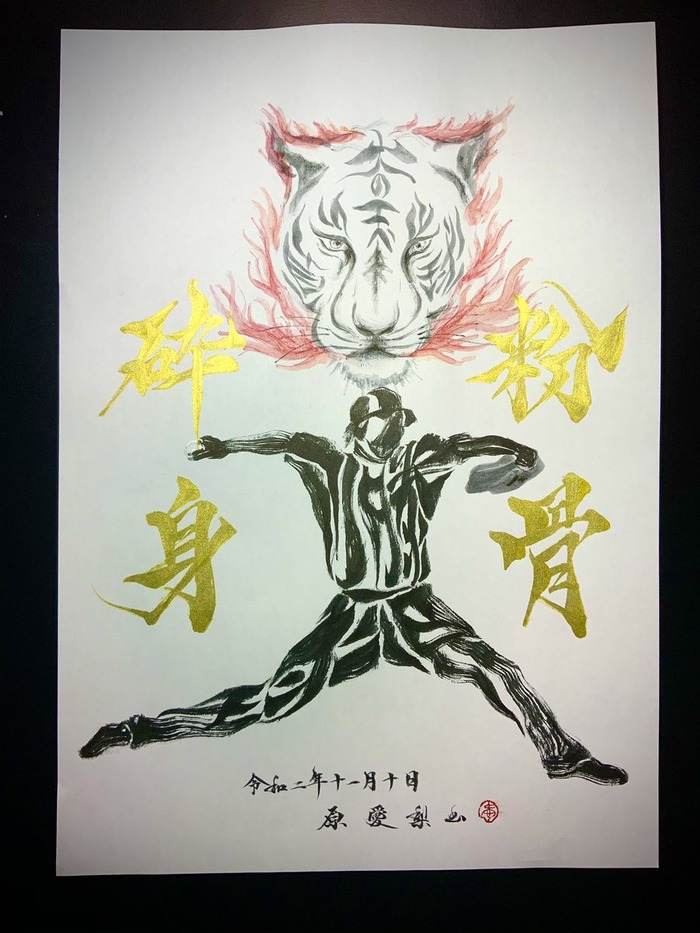 粉骨
砕身
令和二年十一月十日
原愛梨